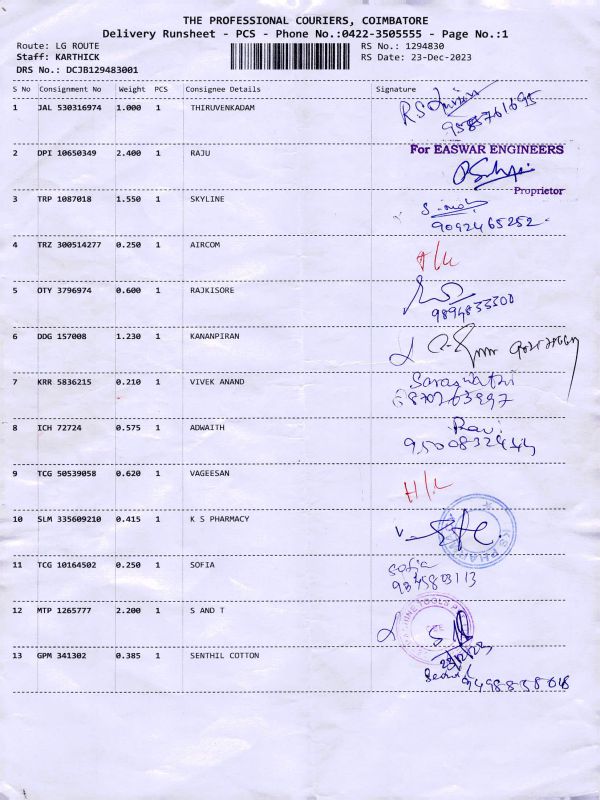 THE PROFESSIONAL COURIERS, COIMBATORE
Delivery Runsheet - PCS - Phone No.:0422-3505555 - Page No.:1
Route: LG ROUTE RS No.: 1294830
Staff: KARTHICK RS Date: 23-Dec-2023
DRS No.: DCJB129483001
S No Consignment No Weight PCS Consignee Details Signature
1 JAL 530316974 1.000 1 THIRUVENKADAM
9585761695
2 DPI 10650349 2.400 1 RAJU For EASWAR ENGINEERS
Proprietor
3 TRP 1087018 1.550 1 SKYLINE
9092465252
4 TRZ 300514277 0.250 1 AIRCOM
5 OTY 3796974 0.600 1 RAJKISORE
9894833300
6 DDG 157008 1.230 1 KANANPIRAN
7 KRR 5836215 0.210 1 VIVEK ANAND Saraswathi
8 ICH 72724 0.575 1 ADWAITH Ravi
9500832444
9 TCG 50539058 0.620 1 VAGEESAN H/L
10 SLM 335609210 0.415 1 K S PHARMACY
11 TCG 10164502 0.250 1 SOFIA Sofia
9845803113
12 MTP 1265777 2.200 1 S AND T
23/12/23
13 GPM 341302 0.385 1 SENTHIL COTTON
9498838048